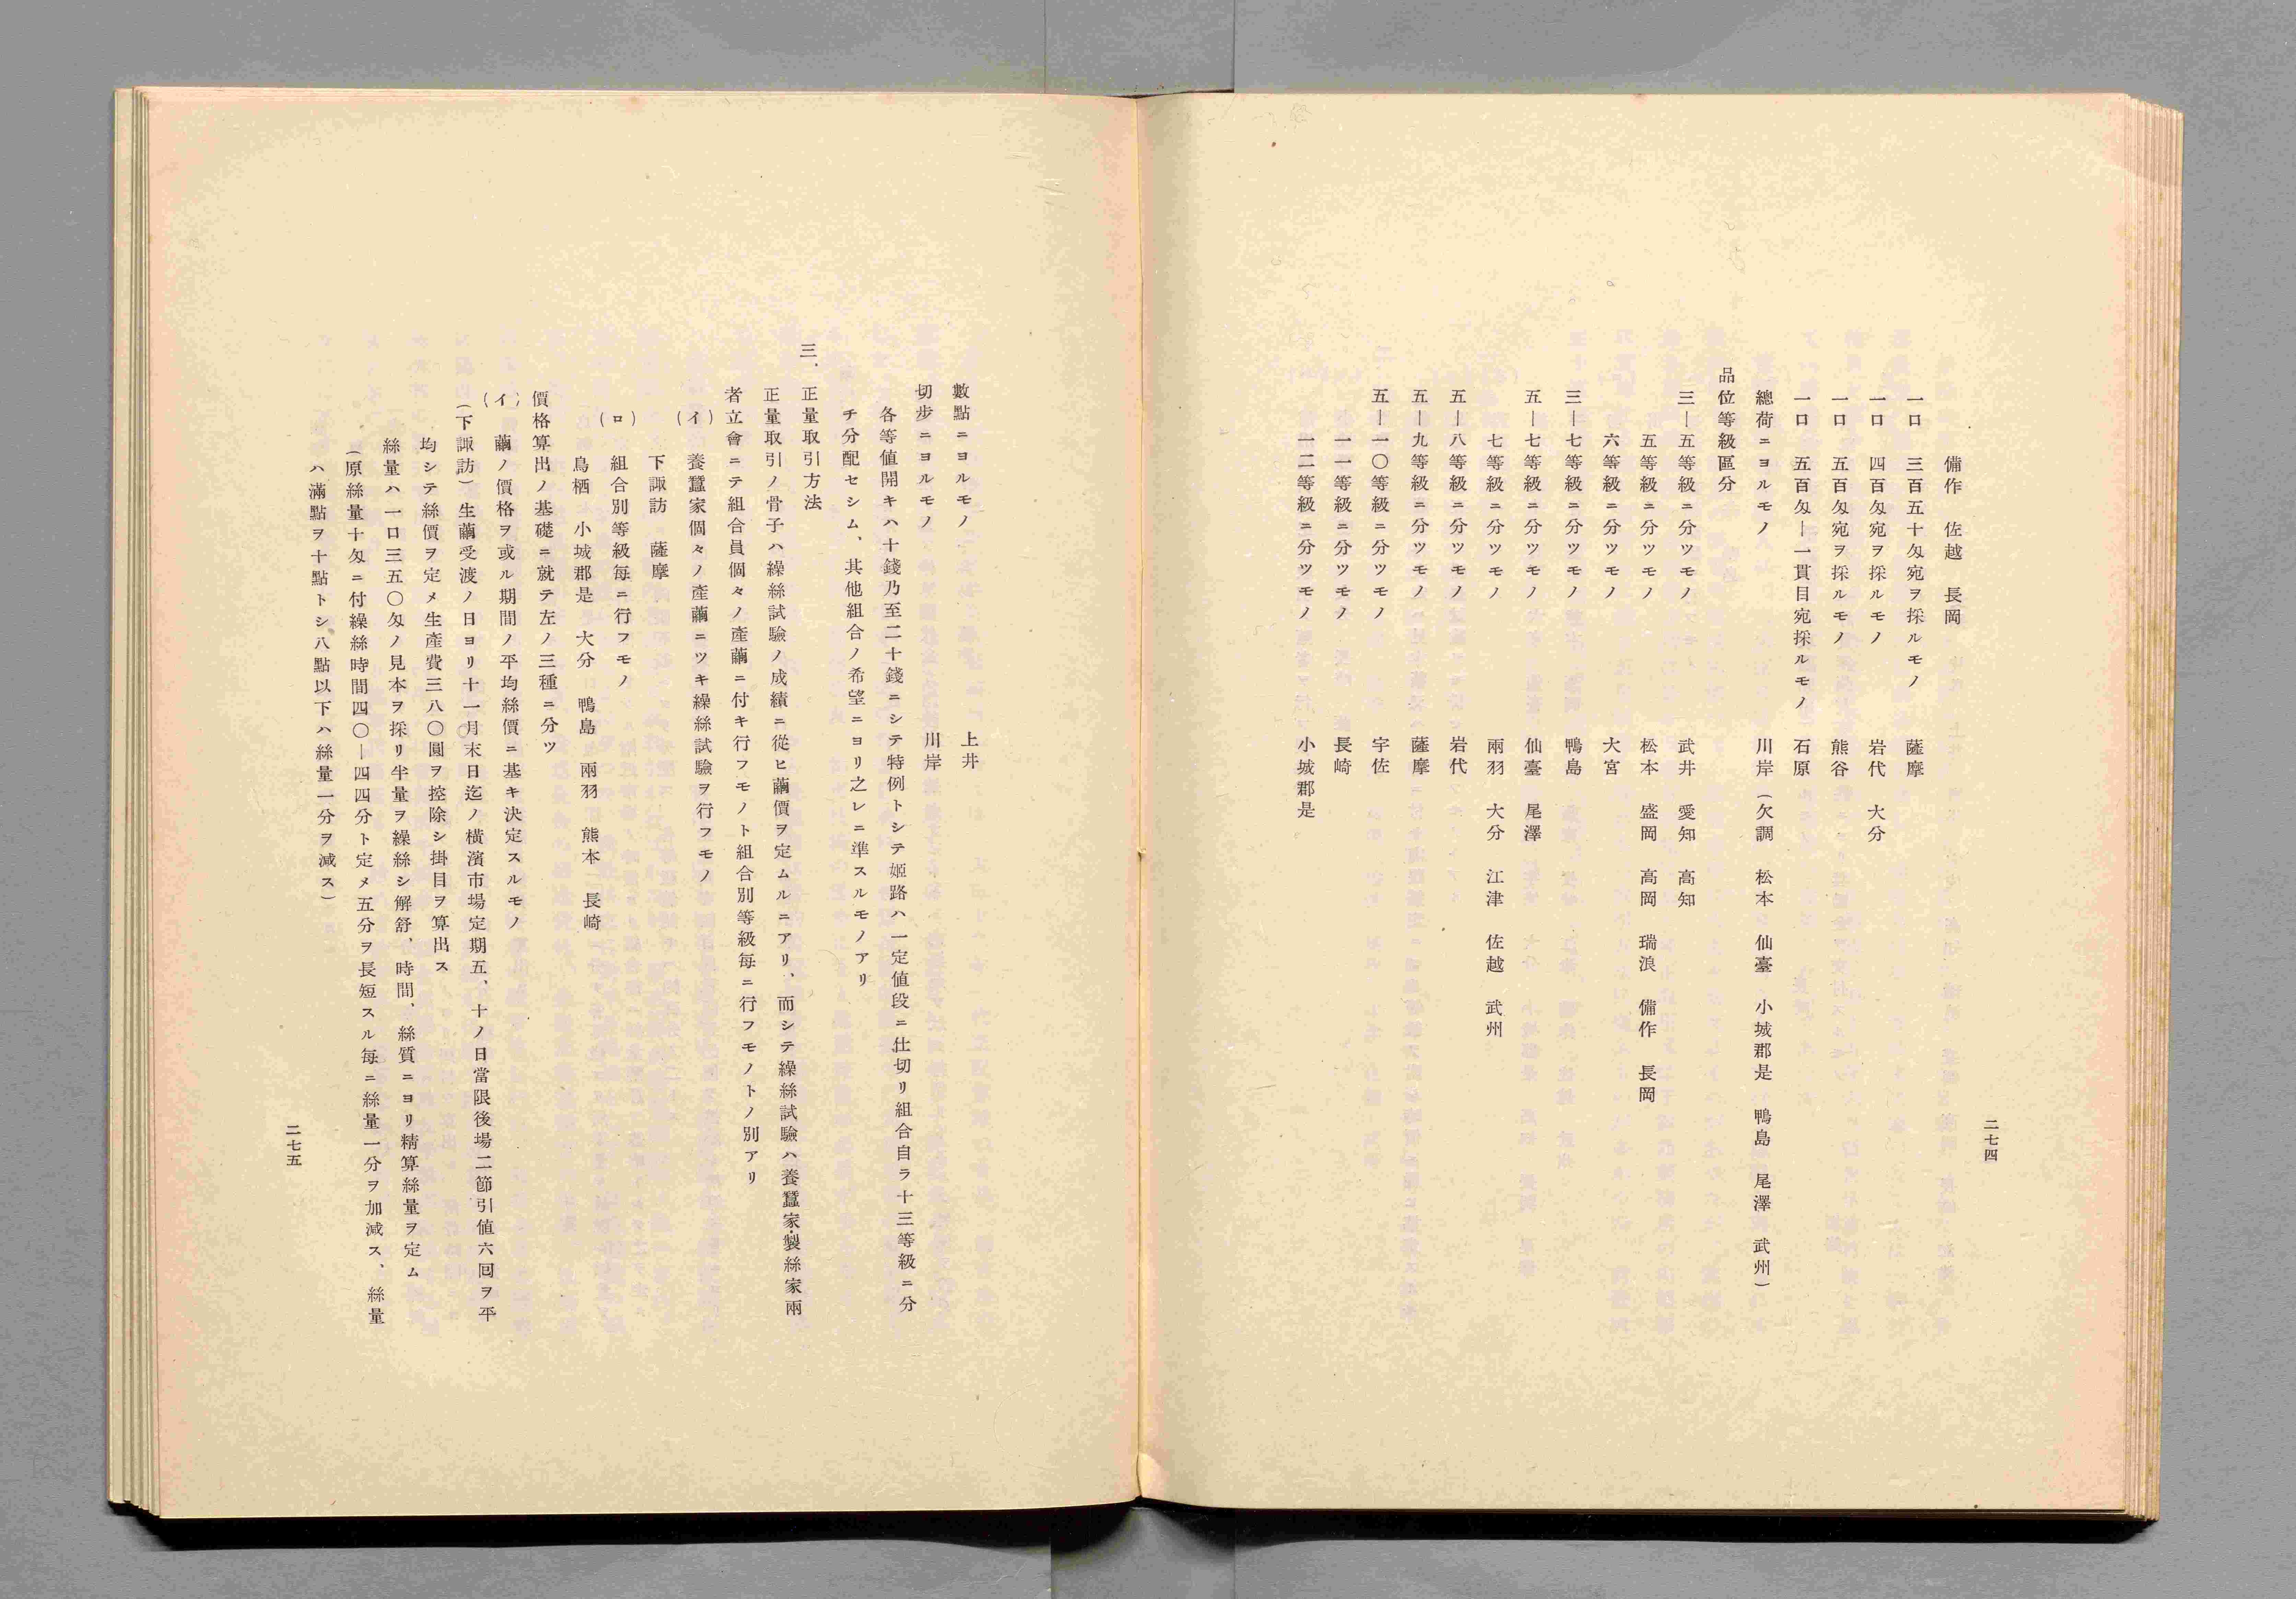 二七四
備作　佐越　長岡
一口　三百五十匁宛ヲ採ルモノ　薩摩
一口　四百匁宛ヲ採ルモノ　岩代　大分
一口　五百匁宛ヲ採ルモノ　熊谷
一口　五百匁―一貫目宛採ルモノ　石原
總荷ニヨルモノ　川岸（欠調　松本　仙臺　小城郡是　鴨島　尾澤　武州）
品位等級區分
三―五等級ニ分ツモノ　武井　愛知　高知
五等級ニ分ツモノ　松本　盛岡　高岡　瑞浪　備作　長岡
六等級ニ分ツモノ　大宮
三―七等級ニ分ツモノ　鴨島
五―七等級ニ分ツモノ　仙臺　尾澤
七等級ニ分ツモノ　兩羽　大分　江津　佐越　武州
五―八等級ニ分ツモノ　岩代
五―九等級ニ分ツモノ　薩摩
五―一〇等級ニ分ツモノ　宇佐
一一等級ニ分ツモノ　長崎
一二等級ニ分ツモノ　小城郡是
數點ニヨルモノ　上井
切步ニヨルモノ　川岸
各等値開キハ十錢乃至二十錢ニシテ特例トシテ姬路ハ一定値段ニ仕切リ組合自ラ十三等級ニ分
チ分配セシム、其他組合ノ希望ニヨリ之レニ準スルモノアリ
三、正量取引方法
正量取引ノ骨子ハ繰絲試驗ノ成績ニ從ヒ繭價ヲ定ムルニアリ、而シテ繰絲試驗ハ養蠶家・製絲家兩
者立會ニテ組合員個々ノ產繭ニ付キ行フモノト組合別等級每ニ行フモノトノ別アリ
（イ）　養蠶家個々ノ產繭ニツキ繰絲試驗ヲ行フモノ
下諏訪　薩摩
（ロ）　組合別等級每ニ行フモノ
鳥栖　小城郡是　大分　鴨島　兩羽　熊本　長崎
價格算出ノ基礎ニ就テ左ノ三種ニ分ツ
（イ）　繭ノ價格ヲ或ル期間ノ平均絲價ニ基キ決定スルモノ
（下諏訪）生繭受渡ノ日ヨリ十一月末日迄ノ橫濱市場定期五、十ノ日當限後場二節引値六回ヲ平
均シテ絲價ヲ定メ生產費三八〇圓ヲ控除シ掛目ヲ算出ス
絲量ハ一口三五〇匁ノ見本ヲ採リ半量ヲ繰絲シ解舒、時間、絲質ニヨリ精算絲量ヲ定ム
（原絲量十匁ニ付繰絲時間四〇―四四分ト定メ五分ヲ長短スル每ニ絲量一分ヲ加減ス、絲量
ハ滿點ヲ十點トシ八點以下ハ絲量一分ヲ減ス）
二七五